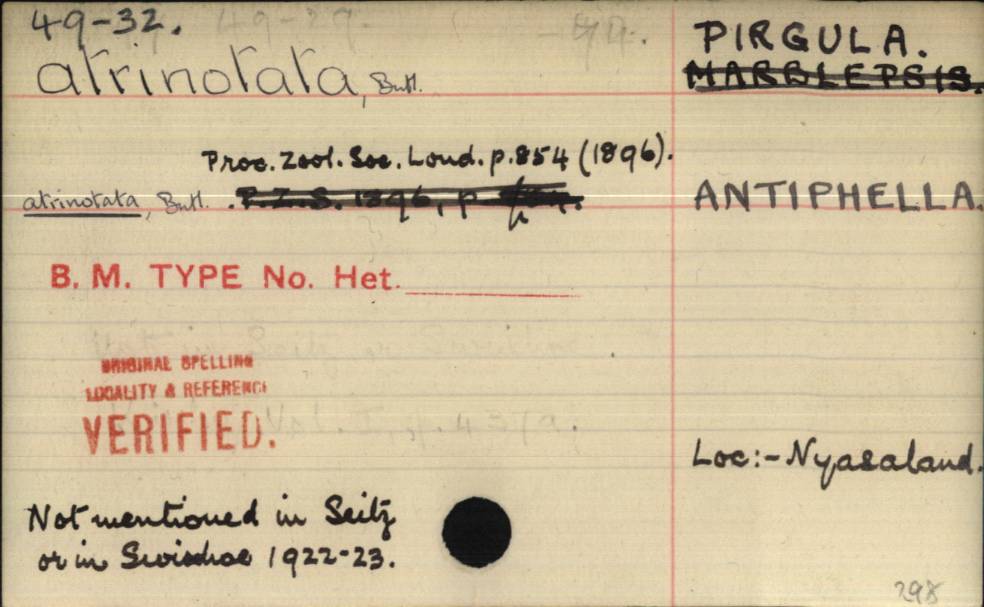 49-32. 49-29.
PIRGULA.
atrinotata, Butl.
MARBLEPSIS.
Proc. Zool. Soc. Lond. p.854 (1896).
atrinotata, Butl. P.Z.S. 1896, p
ANTIPHELLA.
B. M. TYPE No. Het.
ORIGINAL SPELLING
LOCALITY & REFERENCE
VERIFIED.
Loc:- Nyasaland.
Not mentioned in Seitz
or in Swinhoe 1922-23.
298